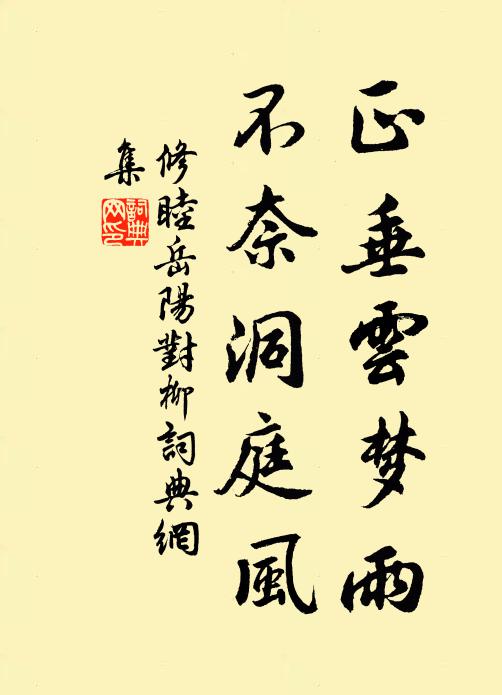 正垂雲梦雨
不奈洞庭風
修睦岳陽對柳詞典網
集
詞典网印